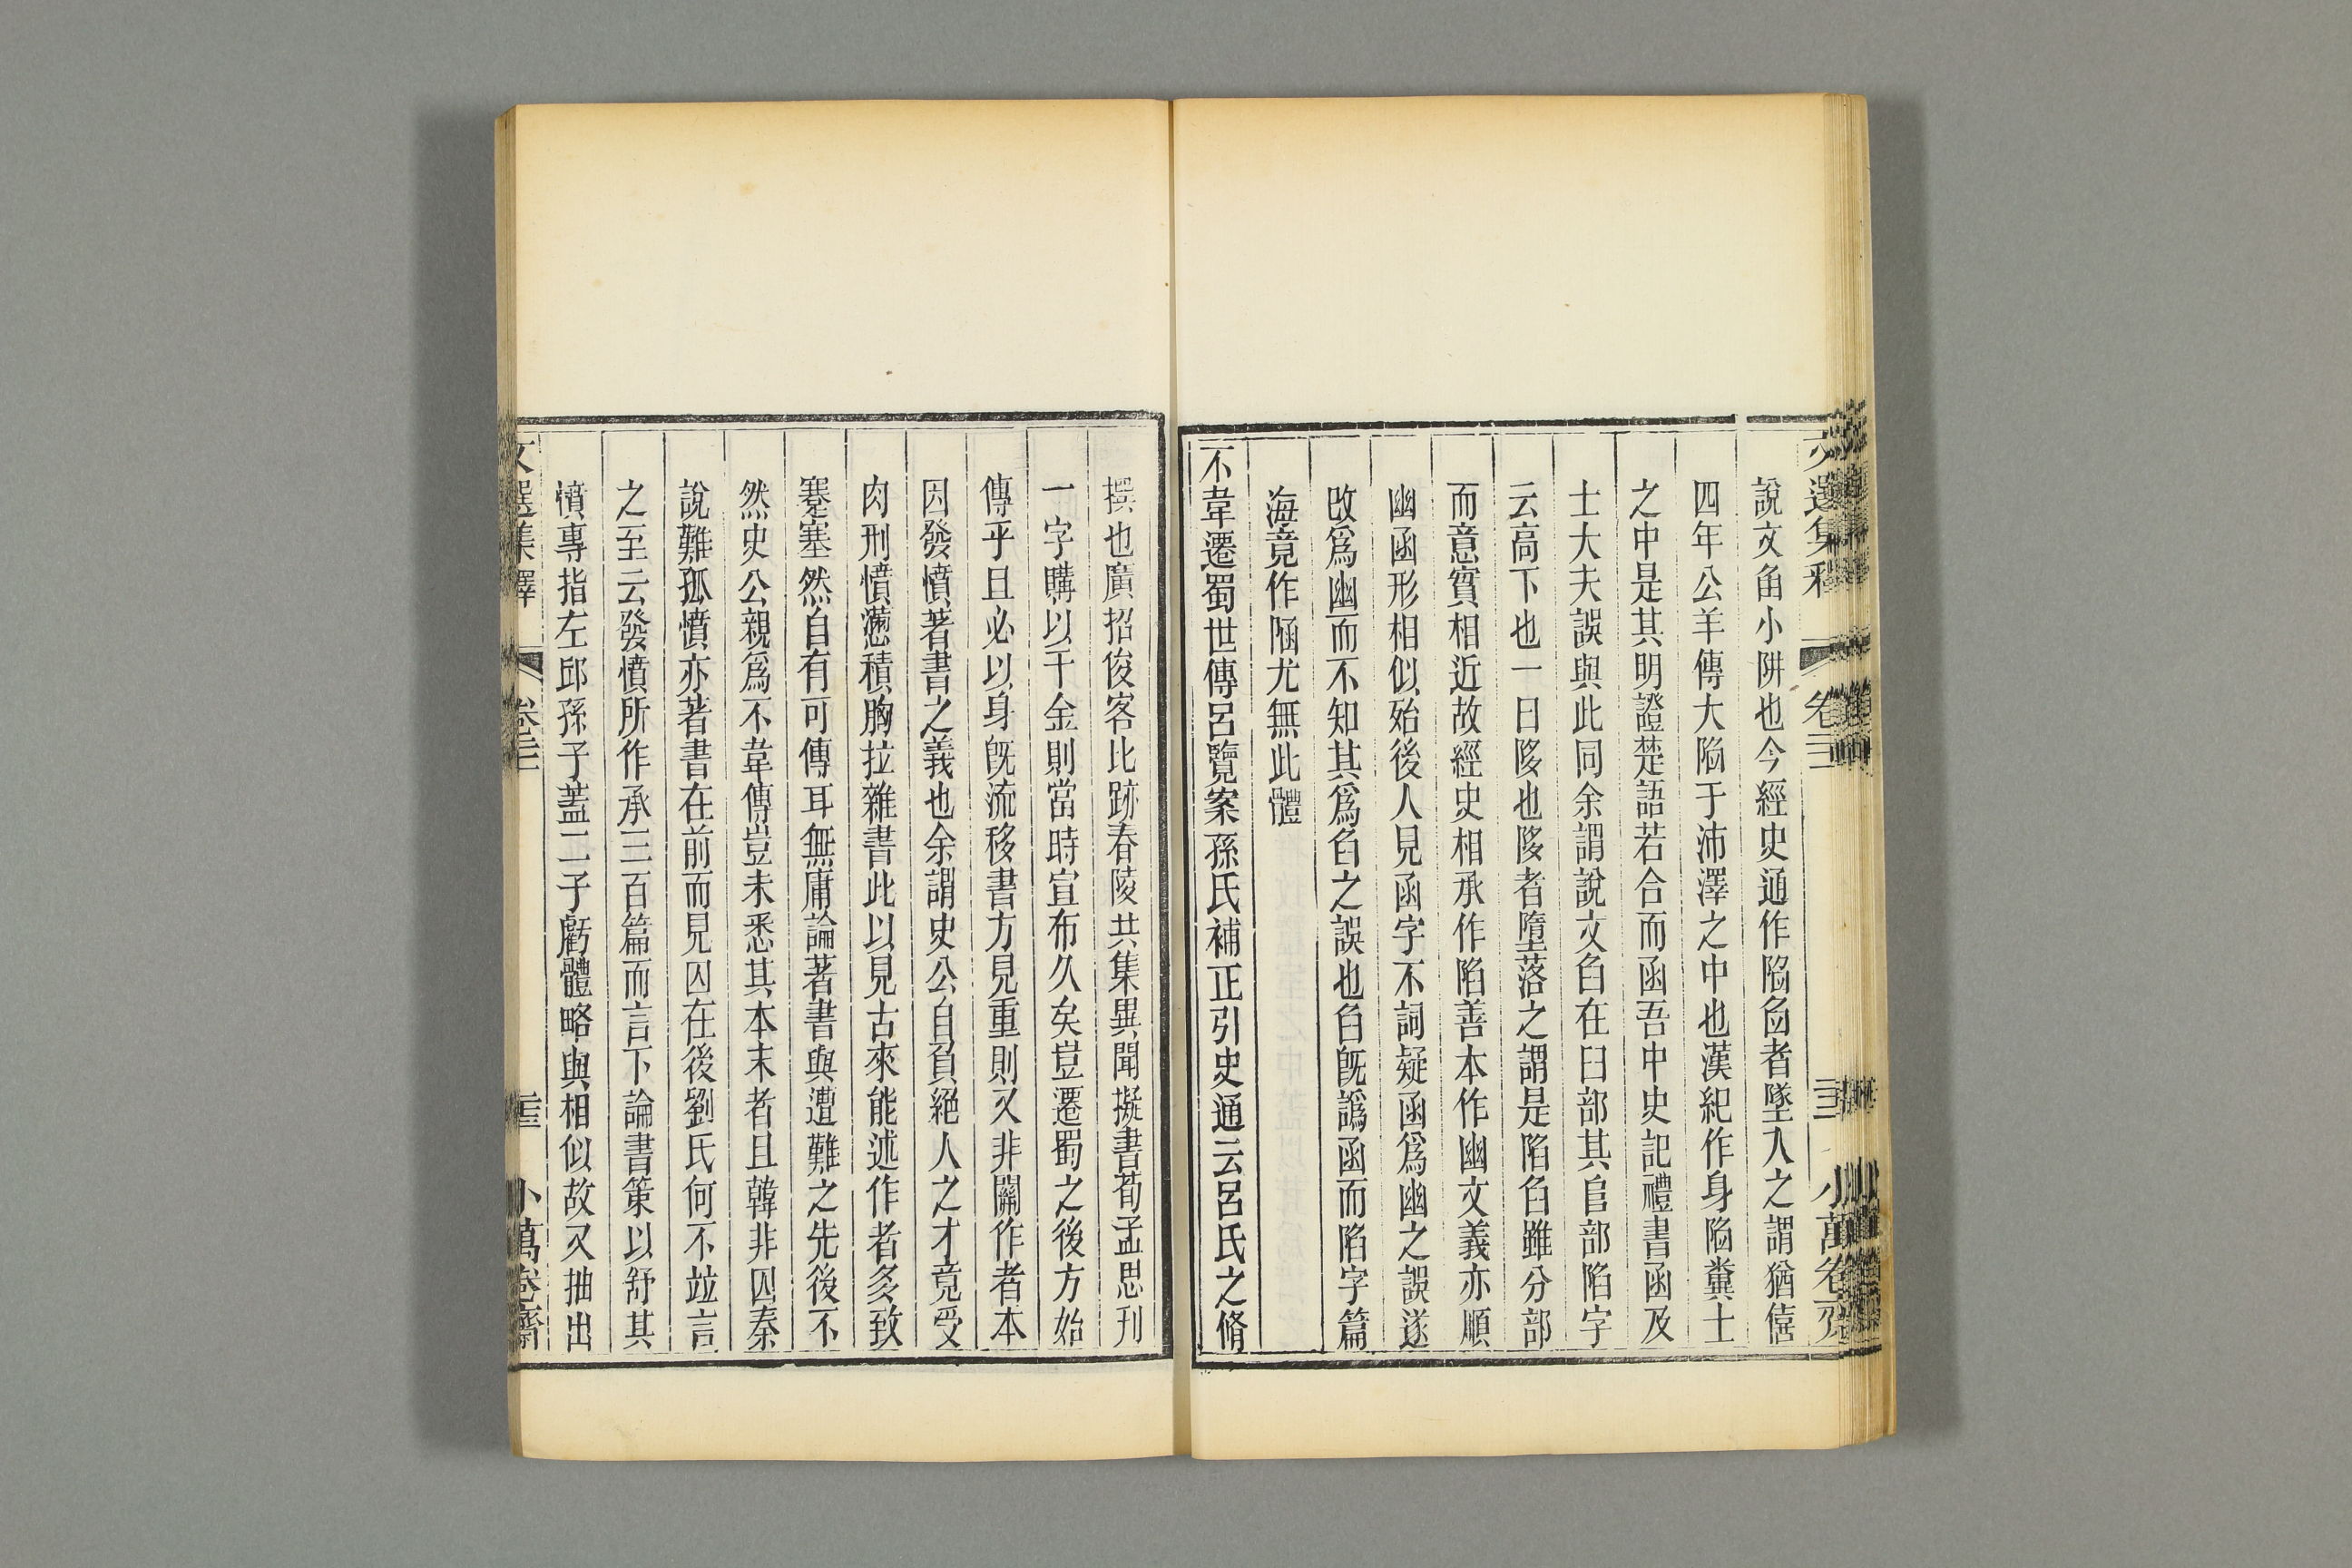 說文臽小阱也今經史通作陷臽者墜入之謂猶僖
四年公羊傳大陷于沛澤之中也漢紀作身陷糞土
之中是其明證楚語若合而函吾中史記禮書函及
士大夫誤與此同余謂說文臽在臼部其𨸏部陷字
云高下也一曰陊也陊者墮落之謂是陷臽雖分部
而意實相近故經史相承作陷善本作幽文義亦順
幽函形相似殆後人見函字不詞疑函爲幽之誤遂
改爲幽而不知其爲臽之誤也臽旣譌函而陷字篇
海竟作䧟尤無此體
不韋遷蜀世傳呂覽案孫氏補正引史通云呂氏之脩
撰也廣招俊客比跡春陵共集異聞擬書荀孟思刊
一字購以千金則當時宣布久矣豈遷蜀之後方始
傳乎且必以身旣流移書方見重則又非關作者本
因發憤著書之義也余謂史公自負絕人之才竟受
肉刑憤懣積胸拉雜書此以見古來能述作者多致
蹇塞然自有可傳耳無庸論著書與遭難之先後不
然史公親爲不韋傳豈未悉其本末者且韓非囚秦
說難孤憤亦著書在前而見囚在後劉氏何不竝言
之至云發憤所作承三百篇而言下論書策以舒其
憤專指左邱孫子蓋二子虧體略與相似故又抽出
文選集釋
卷二十三
小萬卷齋